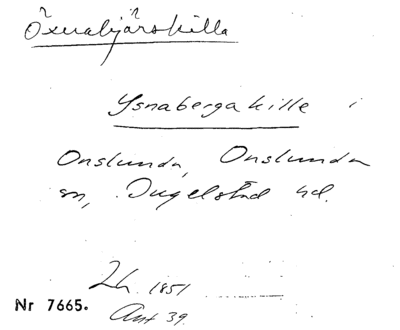 Öxnabjärskilla
Ysnabergakille i
Onslunda, Onslunda
sn, Ingelstad hd.
Lh. 1851
Nr 7665.
Ant 39.